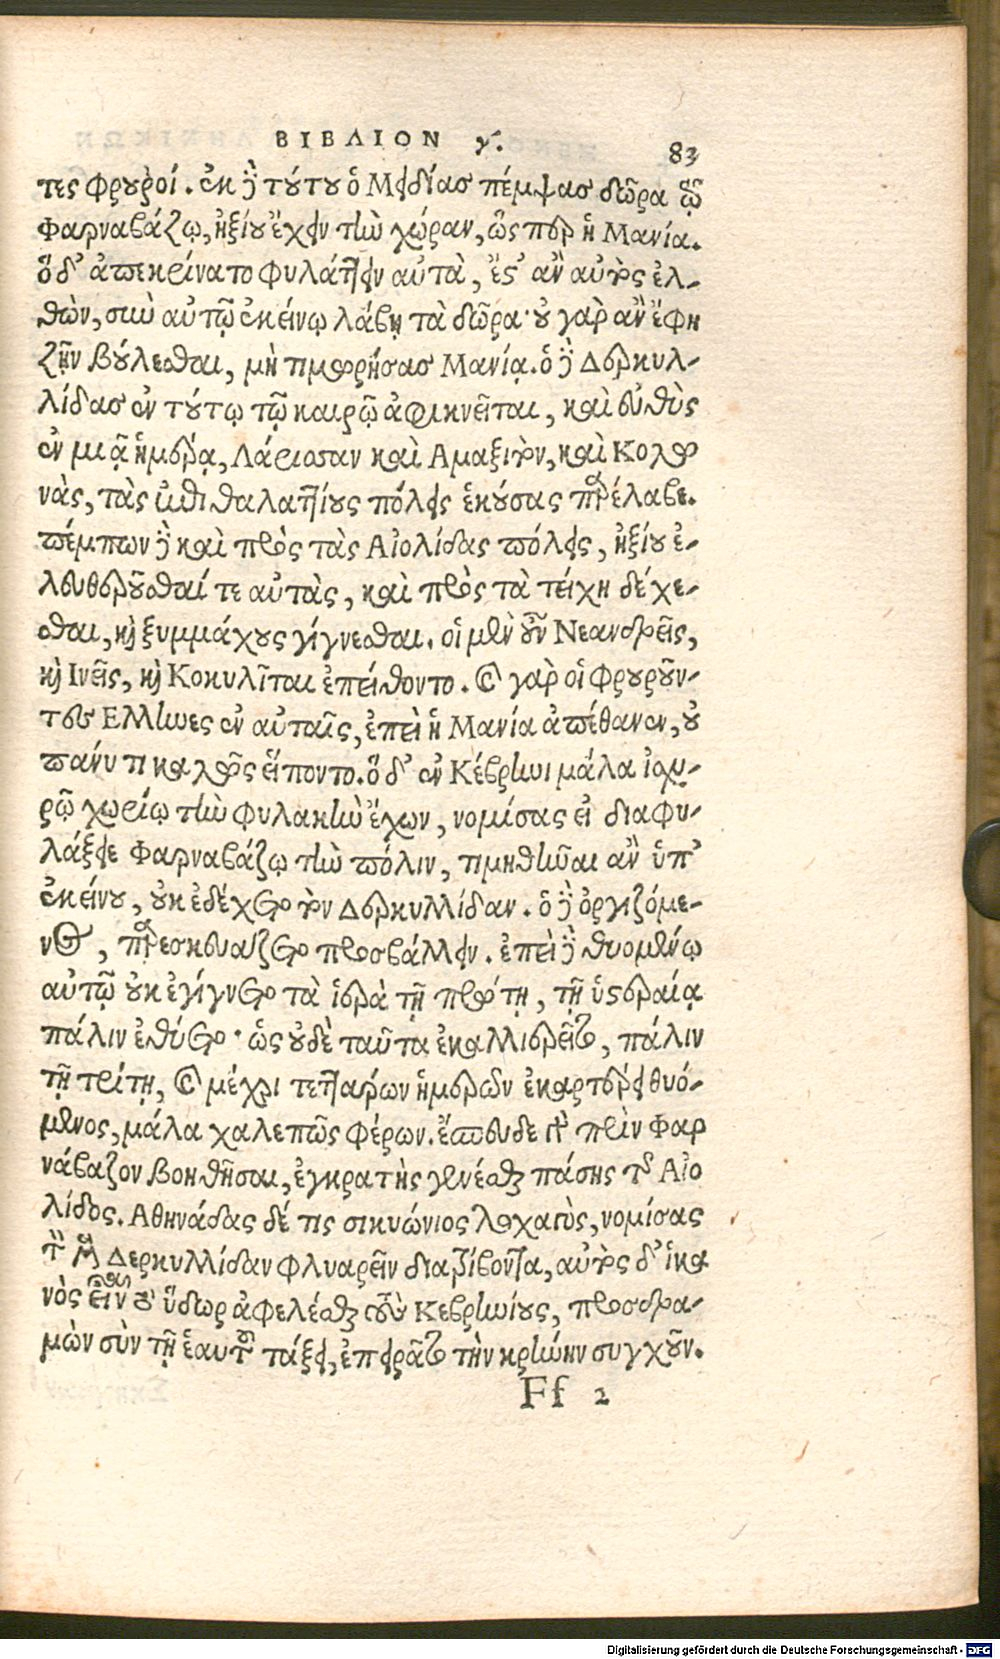 ΒΙΒΛΙΟΝ γ.
83
τες φρουροί. ἐκ δὲ τούτου ὁ Μειδίας πέμψας δῶρα τῷ
Φαρναβάζῳ, ἠξίου ἔχειν τὴν χώραν, ὥσπερ ἡ Μανία.
ὁ δ' ἀπεκρίνατο φυλάττειν αὐτὰ, ἔστ' ἂν αὐτὸς ἐλ-
θὼν, σὺν αὐτῷ ἐκείνῳ λάβῃ τὰ δῶρα· οὐ γὰρ ἂν ἔφη
ζῆν βούλεσθαι, μὴ τιμωρήσας Μανίᾳ. ὁ δὲ Δερκυλ-
λίδας ἐν τούτῳ τῷ καιρῷ ἀφικνεῖται, καὶ εὐθὺς
ἐν μιᾷ ἡμέρᾳ, Λάρισσαν καὶ Αμαξιτὸν, καὶ Κολω
νὰς, τὰς ἐπιθαλαττίους πόλεις ἑκούσας παρέλαβε.
πέμπων δὲ καὶ πρὸς τὰς Αἰολίδας πόλεις, ἠξίου ἐ-
λευθεροῦσθαί τε αὐτὰς, καὶ πρὸς τὰ τείχη δέχε-
σθαι, καὶ ξυμμάχους γίγνεσθαι. οἱ μὲν οὖν Νεανδρεῖς,
καὶ Ινεῖς, καὶ Κοκυλῖται ἐπείθοντο. καὶ γὰρ οἱ φρουροῦν-
τες Ελληνες ἐν αὐταῖς, ἐπεὶ ἡ Μανία ἀπέθανεν, οὐ
πάνυ τι καλῶς εἵποντο. ὁ δ' ἐν Κέβρηνι μάλα ἰσχυ-
ρῷ χωρίῳ τὴν φυλακὴν ἔχων, νομίσας εἰ διαφυ-
λάξειε Φαρναβάζῳ τὴν πόλιν, τιμηθῆναι ἂν ὑπ'
ἐκείνου, οὐκ ἐδέχετο τὸν Δερκυλλίδαν. ὁ δὲ ὀργιζόμε-
νος, παρεσκευάζετο προσβάλλειν. ἐπεὶ δὲ θυομένῳ
αὐτῷ οὐκ ἐγίγνετο τὰ ἱερὰ τῇ πρώτῃ, τῇ ὑστεραίᾳ
πάλιν ἐθύετο· ὡς οὐδὲ ταῦτα ἐκαλλιερεῖτο, πάλιν
τῇ τρίτῃ, καὶ μέχρι τεττάρων ἡμερῶν ἐκαρτέρει θυό-
μενος, μάλα χαλεπῶς φέρων. ἔσπευδε γὰρ πρὶν Φαρ
νάβαζον βοηθῆσαι, ἐγκρατὴς γενέσθαι πάσης τῆς Αἰο
λίδος. Αθηνάδας δέ τις σικυώνιος λοχαγὸς, νομίσας
τὸν μὲν Δερκυλλίδαν φλυαρεῖν διατρίβοντα, αὐτὸς δ' ἱκα
νὸς εἶναι τὸ ὕδωρ ἀφελέσθαι τοὺς Κεβρηνίους, προσδρα-
μὼν σὺν τῇ ἑαυτοῦ τάξει, ἐπειρᾶτο τὴν κρήνην συγχοῦν.
Ff 2
Digitalisierung gefördert durch die Deutsche Forschungsgemeinschaft - DFG